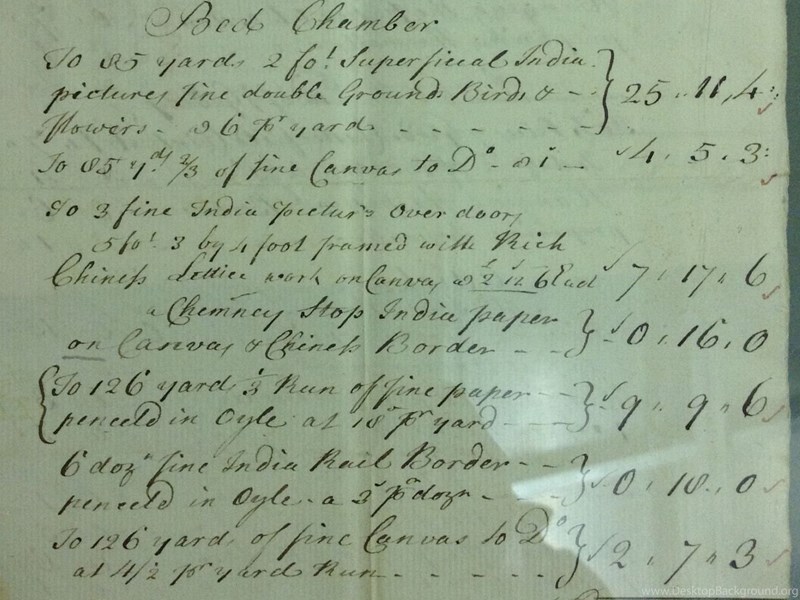 Bed Chamber
To 85 yards 2 fot Superficial India
pictures fine double Ground Birds &
flowers - a 6 pr yard - - - - - - 25 " 11 " 4
To 85 yds 2/3 of fine Canvas to Do - a 1s - 4 " 5 " 3
To 3 fine India pictures Over doors
5 fot 3 by 4 foot framed with Rich
Chiness Lattice work on Canvas a 2 12 6 Each 7 " 17 " 6
a Chemney Stop India paper
on Canvas & Chiness Border - - 0 " 16 " 0
To 126 yards 1/3 Run of fine paper - -
penceld in Oyle at 18d pr yard - - - 9 " 9 " 6
6 dozn fine India Rail Border - -
penceld in Oyle - a 3s pr dozn - - 0 " 18 " 0
To 126 yards of fine Canvas to Do
at 4 1/2 pr yard Run - - - - - 2 " 7 " 3
www.DesktopBackground.org